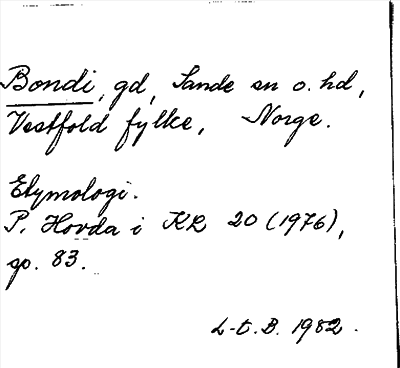 Bondi, gd, Sande sn o. hd,
Vestfold fylke, Norge.
Etymologi.
P. Hovda i KR 20 (1976),
sp. 83.
L-t. B. 1982.